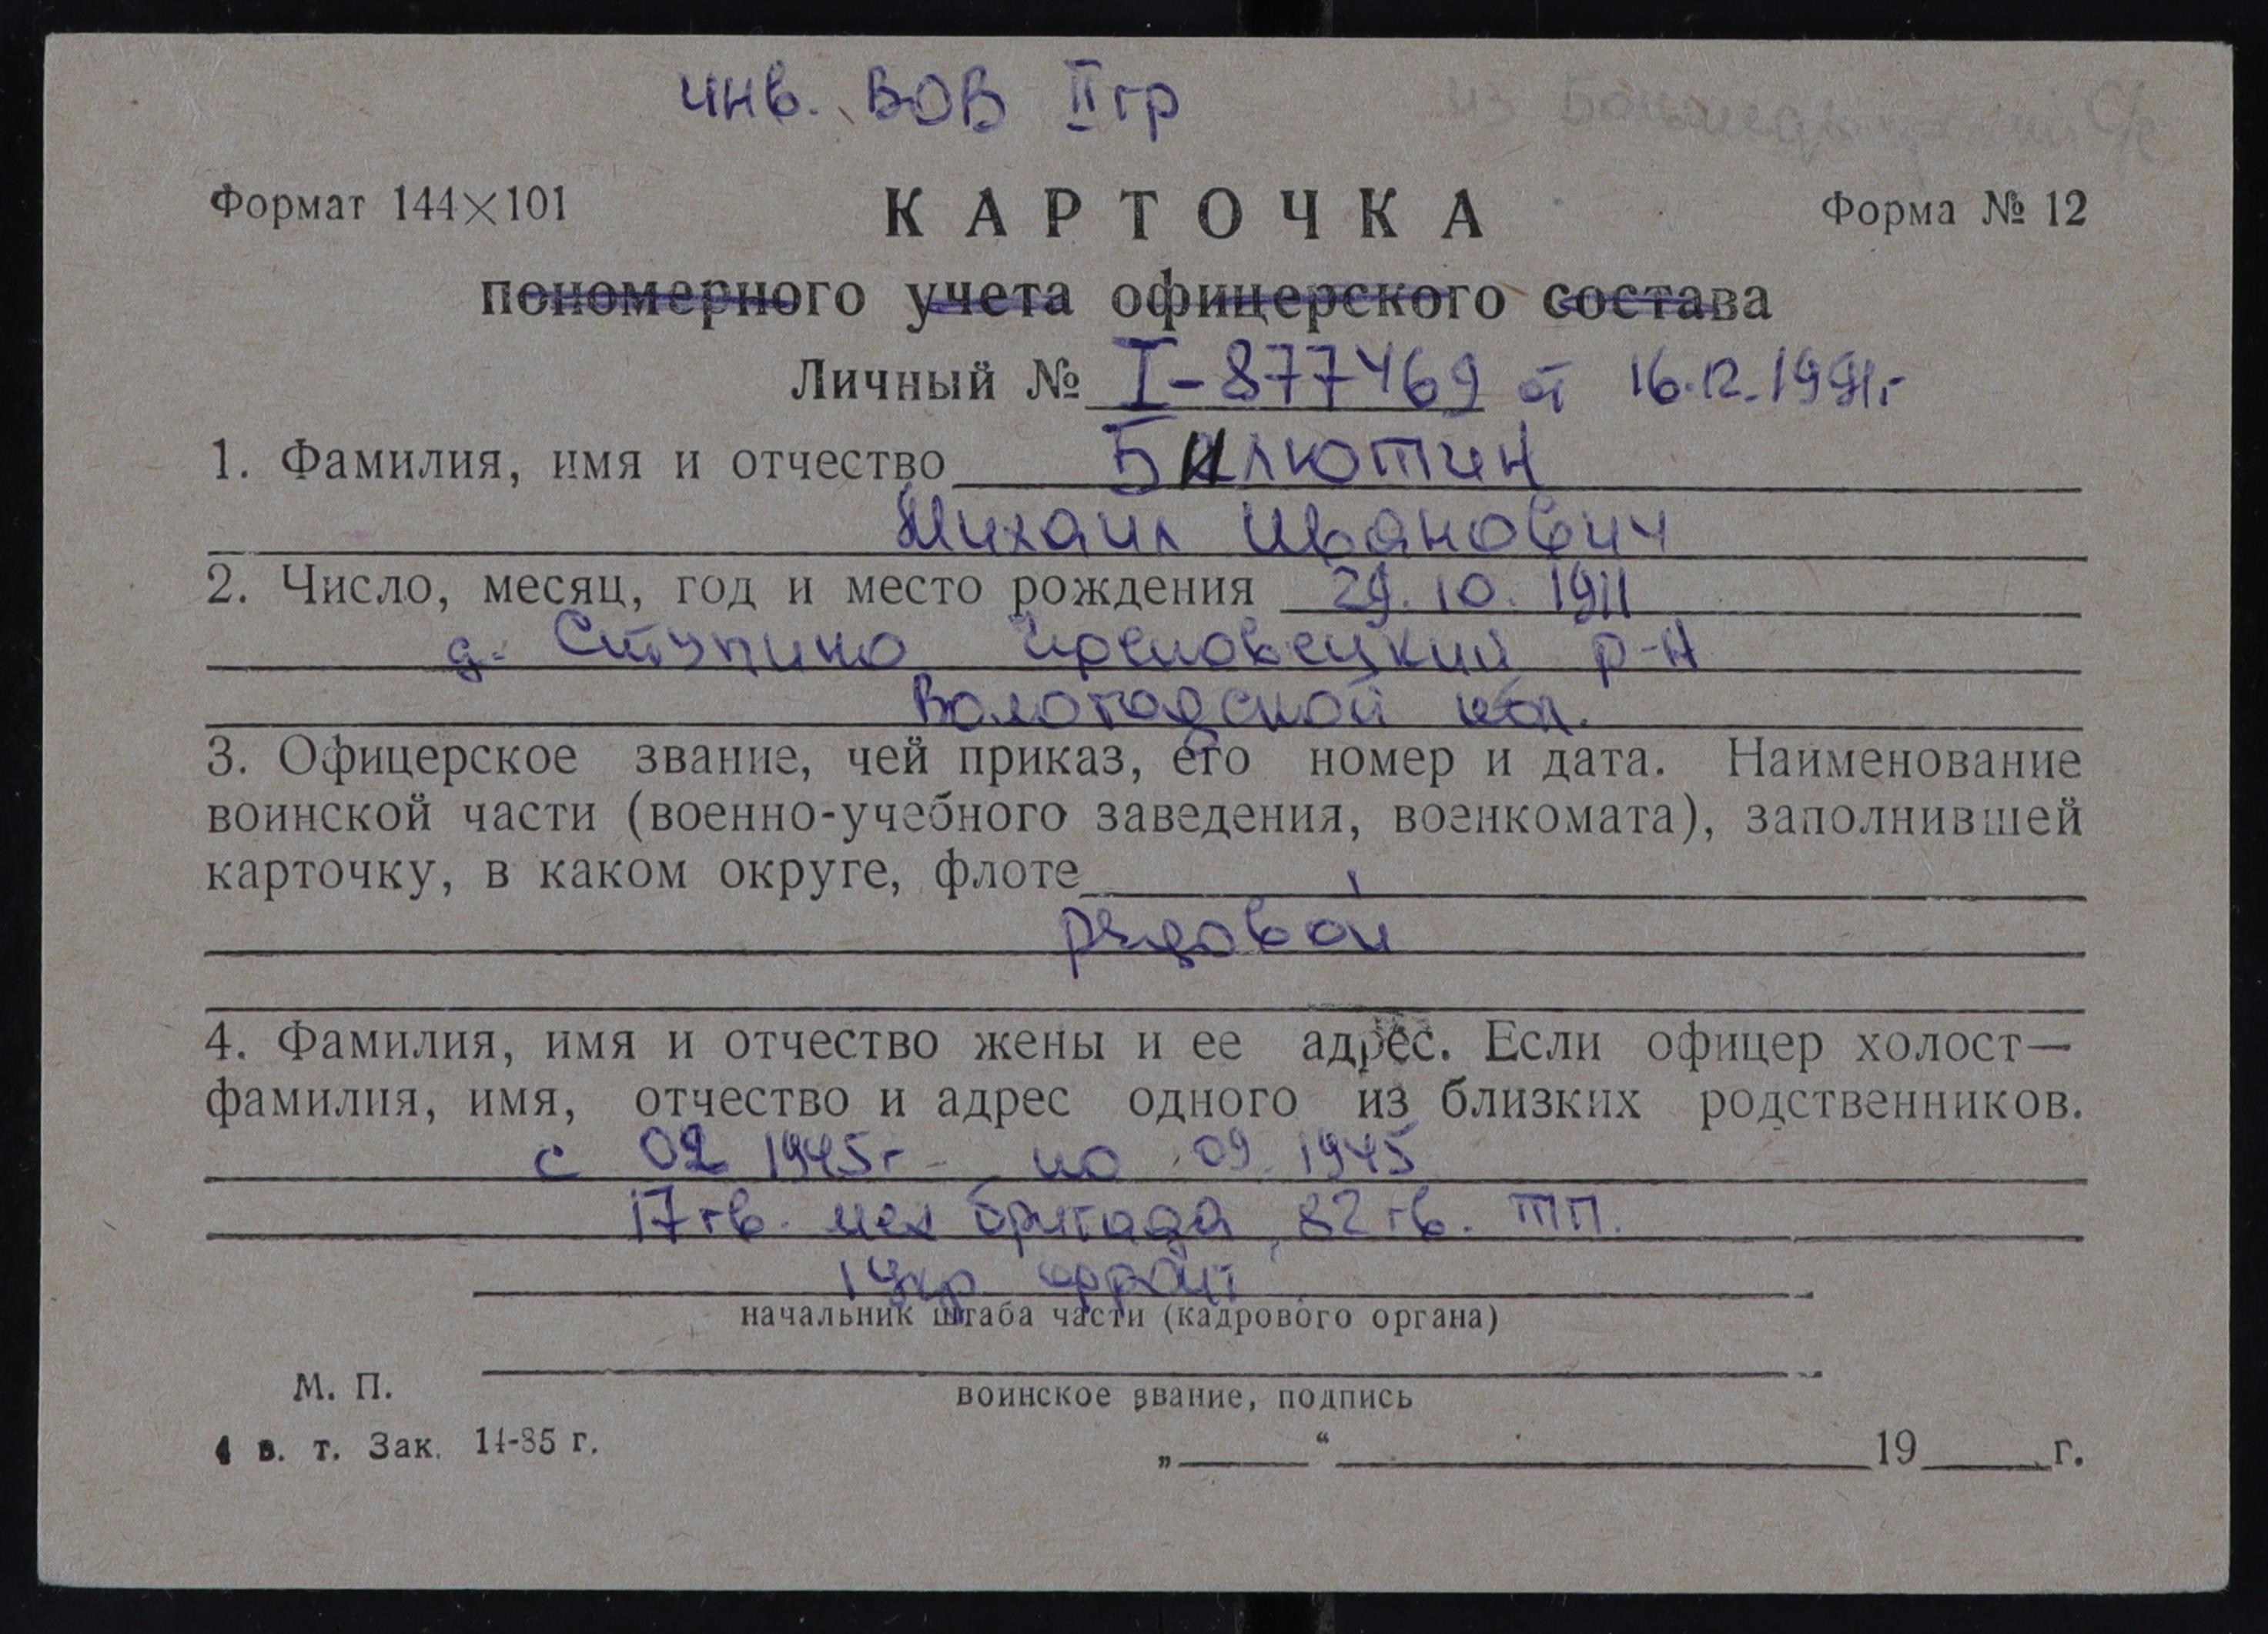 инв. ВОВ II гр
из С/с
Формат 144×101
КАРТОЧКА
Форма № 12
пономерного учета офицерского состава
Личный № I-877469 от 16.12.1991г
1. Фамилия, имя и отчество Билютин
Михаил Иванович
2. Число, месяц, год и место рождения 29.10.1911
д. Ступино Череповецкий р-н
Вологодской обл.
3. Офицерское звание, чей приказ, его номер и дата. Наименование
воинской части (военно-учебного заведения, военкомата), заполнившей
карточку, в каком округе, флоте
рядовой
4. Фамилия, имя и отчество жены и ее адрес. Если офицер холост—
фамилия, имя, отчество и адрес одного из близких родственников.
с 02 1945г - по 09 1945
17 гв. мех бригада, 82 гв. ТП.
1 Укр фронт
начальник штаба части (кадрового органа)
М. П.
воинское звание, подпись
4 в. т. Зак. 14-85 г.
„ “ 19 г.